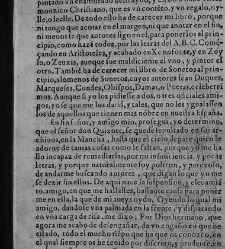 montico Christiano, que es vn vizio, y vn regalo, oy-
lle, o leelle. De todo esto ha de carecer mi libro, porque
ni tengo que acotar en el margen, ni que anotar en el fin,
ni menos se que autores sigo en el, para ponerlos al prin-
cipio, como hazē todos, por las letras del A.B.C. Començ
çando en Aristoteles, y acabando en Xenofonte, y en Zoy
lo, o Zeuxis, aunque fue maldiciente el vno, y pintor el
otro. Tambiē ha de carecer mi libro de Sonetos al prin-
cipio, alomenos de Sonetos, cuyos autores sean Duques,
Marqueses, Condes, Obispos, Damas, o Poetas celeberri
mos. Aunque si yo los pidiesse a dos, o tres oficiales ami-
gos, yo se que me los darian, y tales, que no les ygualassen
los de aquellos que tienen mas nōbre en nuestra España.
En fin señor, y amigo mio, prosegui, yo determino,
que el señor don Quixote, se quede sepultado en sus ar-
chiuos, en la Mancha, hasta que el cielo depare quien le
adorne de tantas cosas como le faltan, porque yo me ha
llo incapaz de remediarlas, por mi insuficiencia, y pocas
letras, y porque naturalmente soy poltron, y perezoso,
de andarme buscando autores, que digan lo que yo me
se dezir sin ellos. De aqui nace la suspension, y eleuamiē
to, amigo, en que me hallastes, bastante causa para poner
me en ella, la que de mi aueys oydo. Oyendo lo qual mi
amigo, dandose vna palmada en la frente, y disparando
en vna carga de risa, me dixo: Por Dios hermano, que
agora me acabo de desengañar, de vn engaño en que he
estado, todo el mucho tiempo que ha que os conozco, en
el qual siempre os he tenido por discreto, y prudente, en